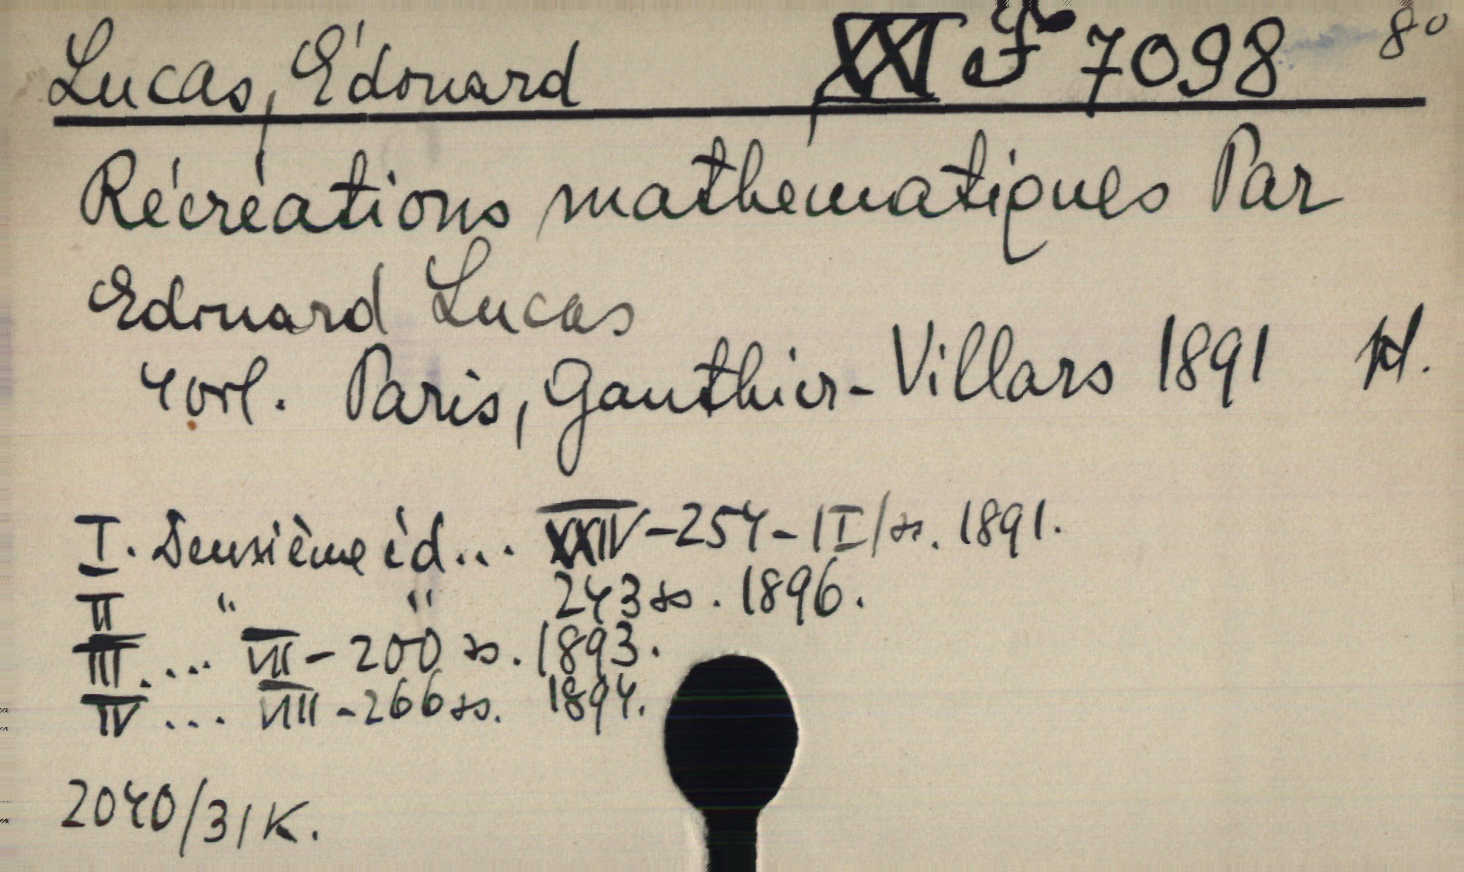 Lucas, Édouard XXI F 7098 8°
Récréations mathematiques Par
Edouard Lucas
4 vol. Paris, Gauthier-Villars 1891
I. Deuxième éd... XXIV-254-II ss. 1891.
II " " 243 ss. 1896.
III.... VII-200 ss. 1893.
IV ... VIII-266 ss. 1894.
2040/31 K.